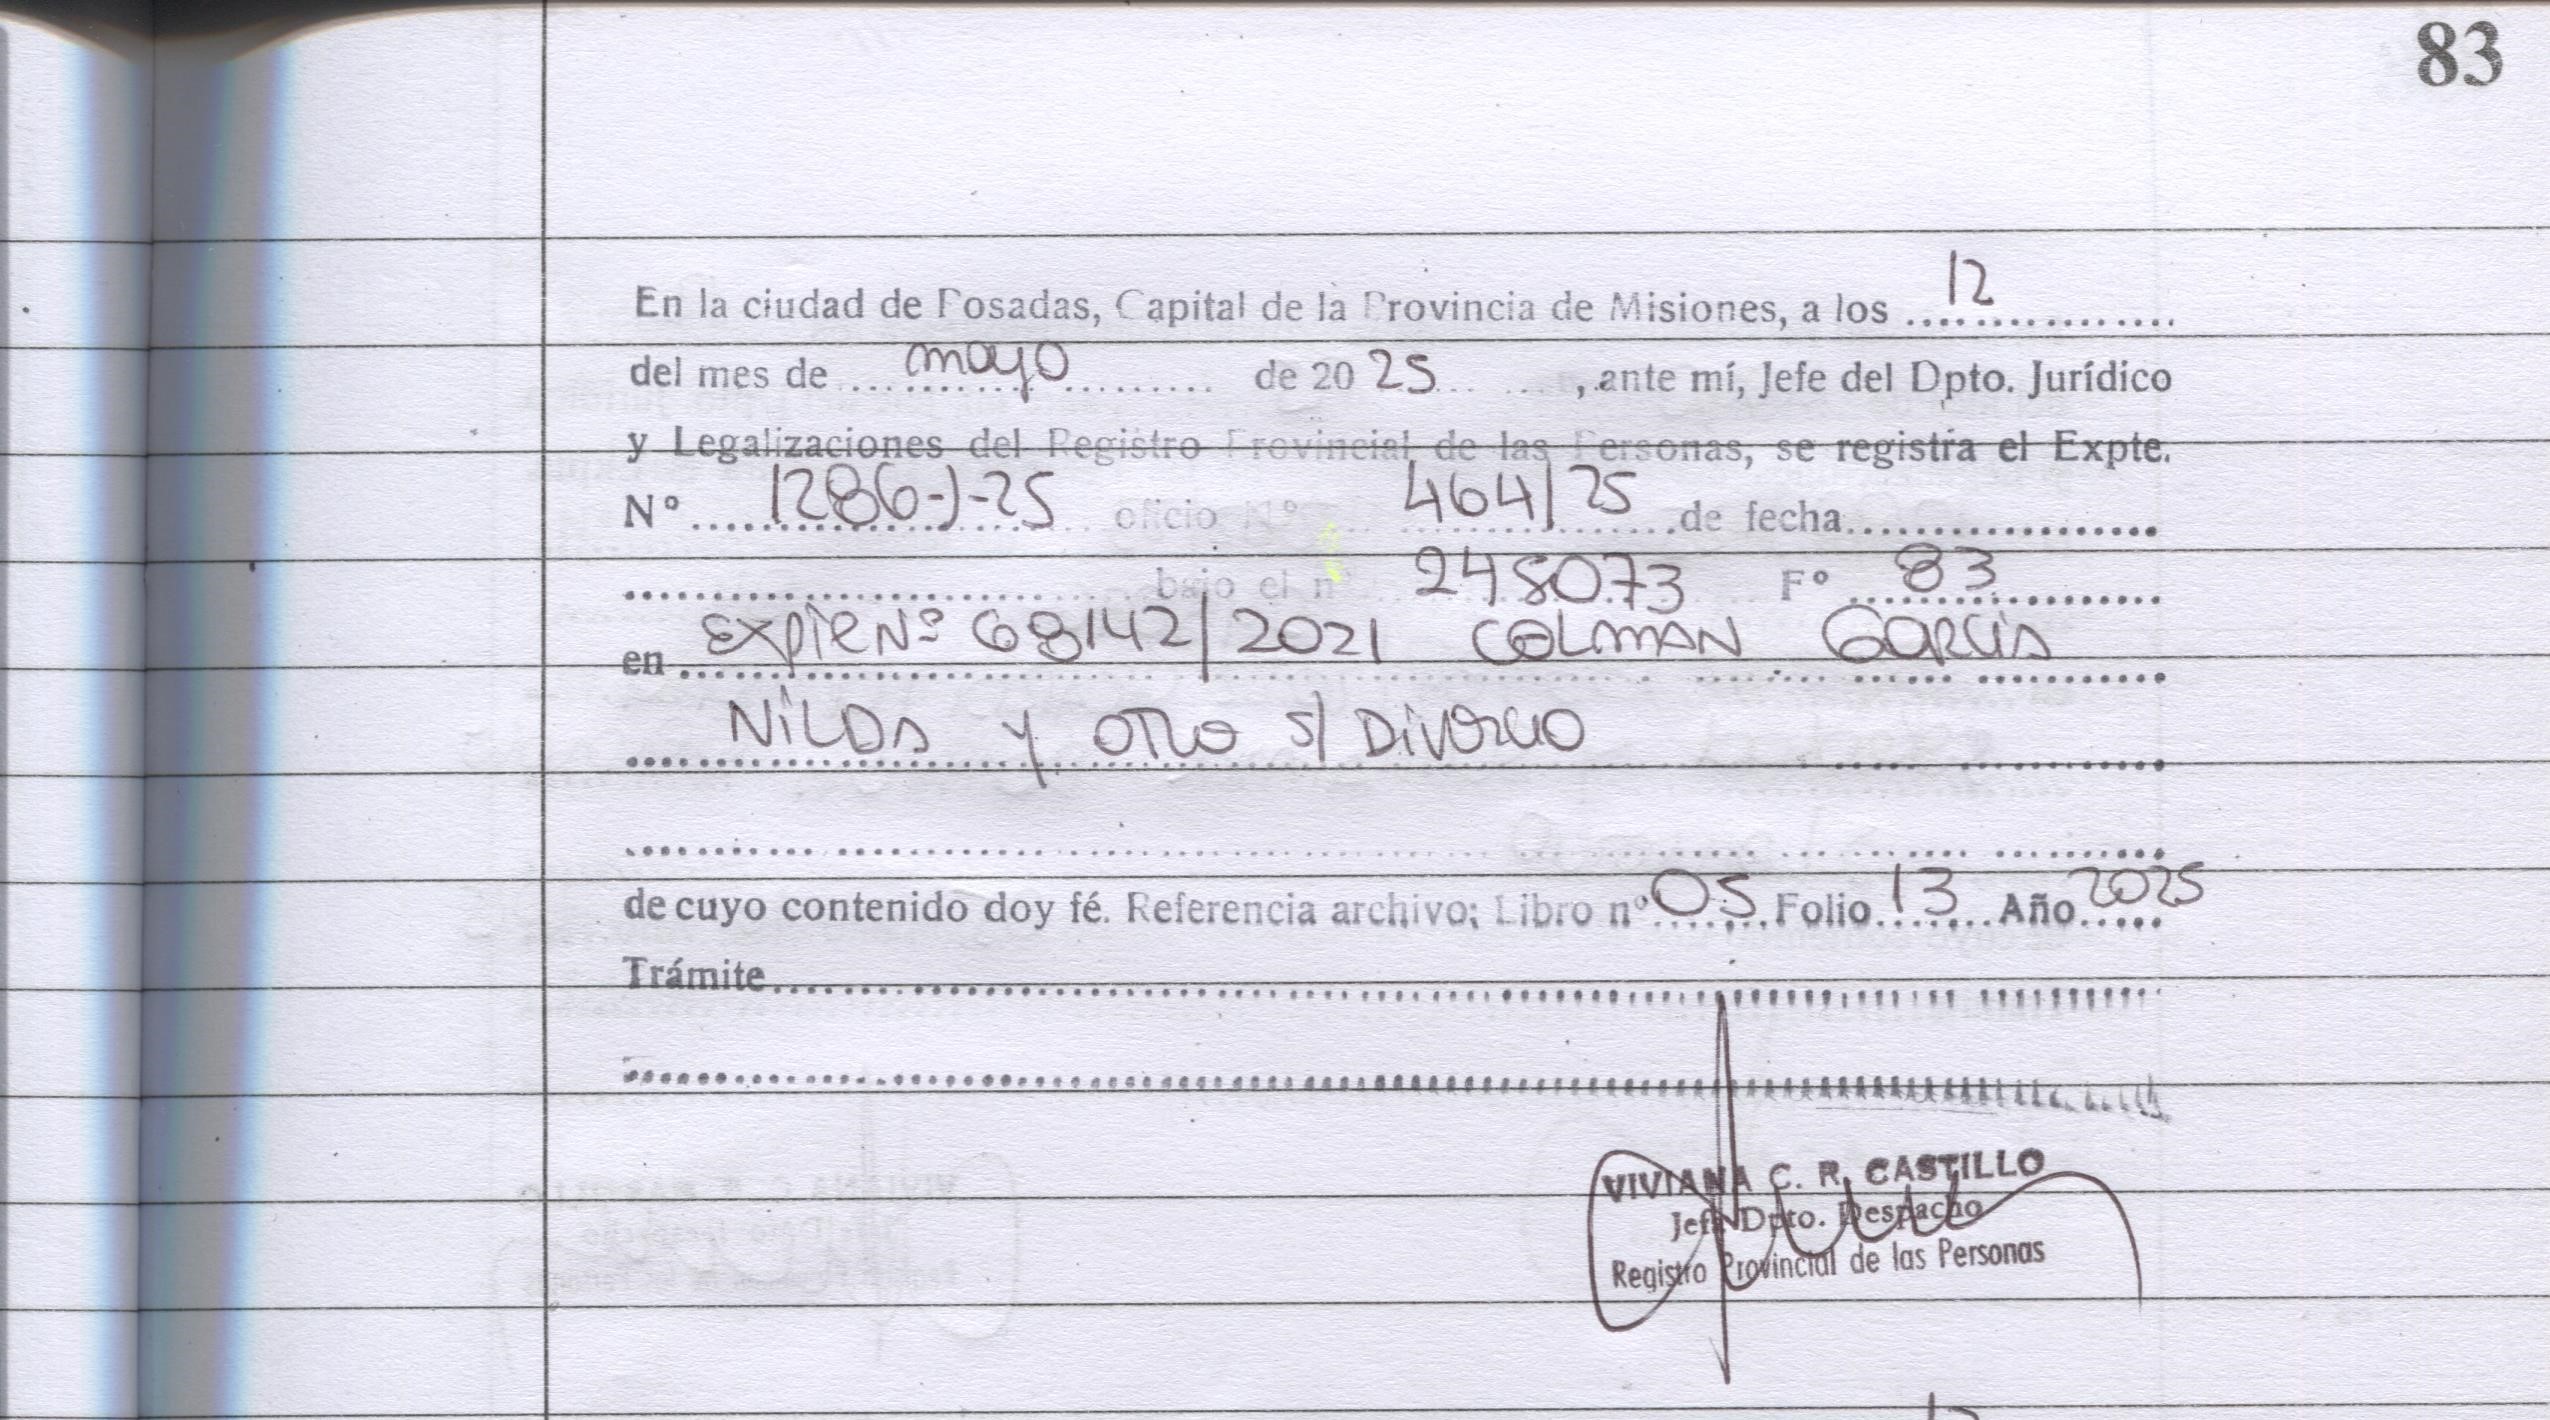 83
En la ciudad de Posadas, Capital de la Provincia de Misiones, a los 12
del mes de mayo de 20 25 , ante mí, Jefe del Dpto. Jurídico
y Legalizaciones del Registro Provincial de las Personas, se registra el Expte.
N° 1286-J-25 oficio N° 464/25 de fecha
bajo el n° 248073 F° 83
en Expte Nº 68142/2021 COLMAN GARCIA
NILDA y OTRO s/ DIVORCIO
de cuyo contenido doy fé. Referencia archivo; Libro n° 05 Folio 13 Año 2025
Trámite
VIVIANA C. R. CASTILLO
Jefa Dpto. Despacho
Registro Provincial de las Personas